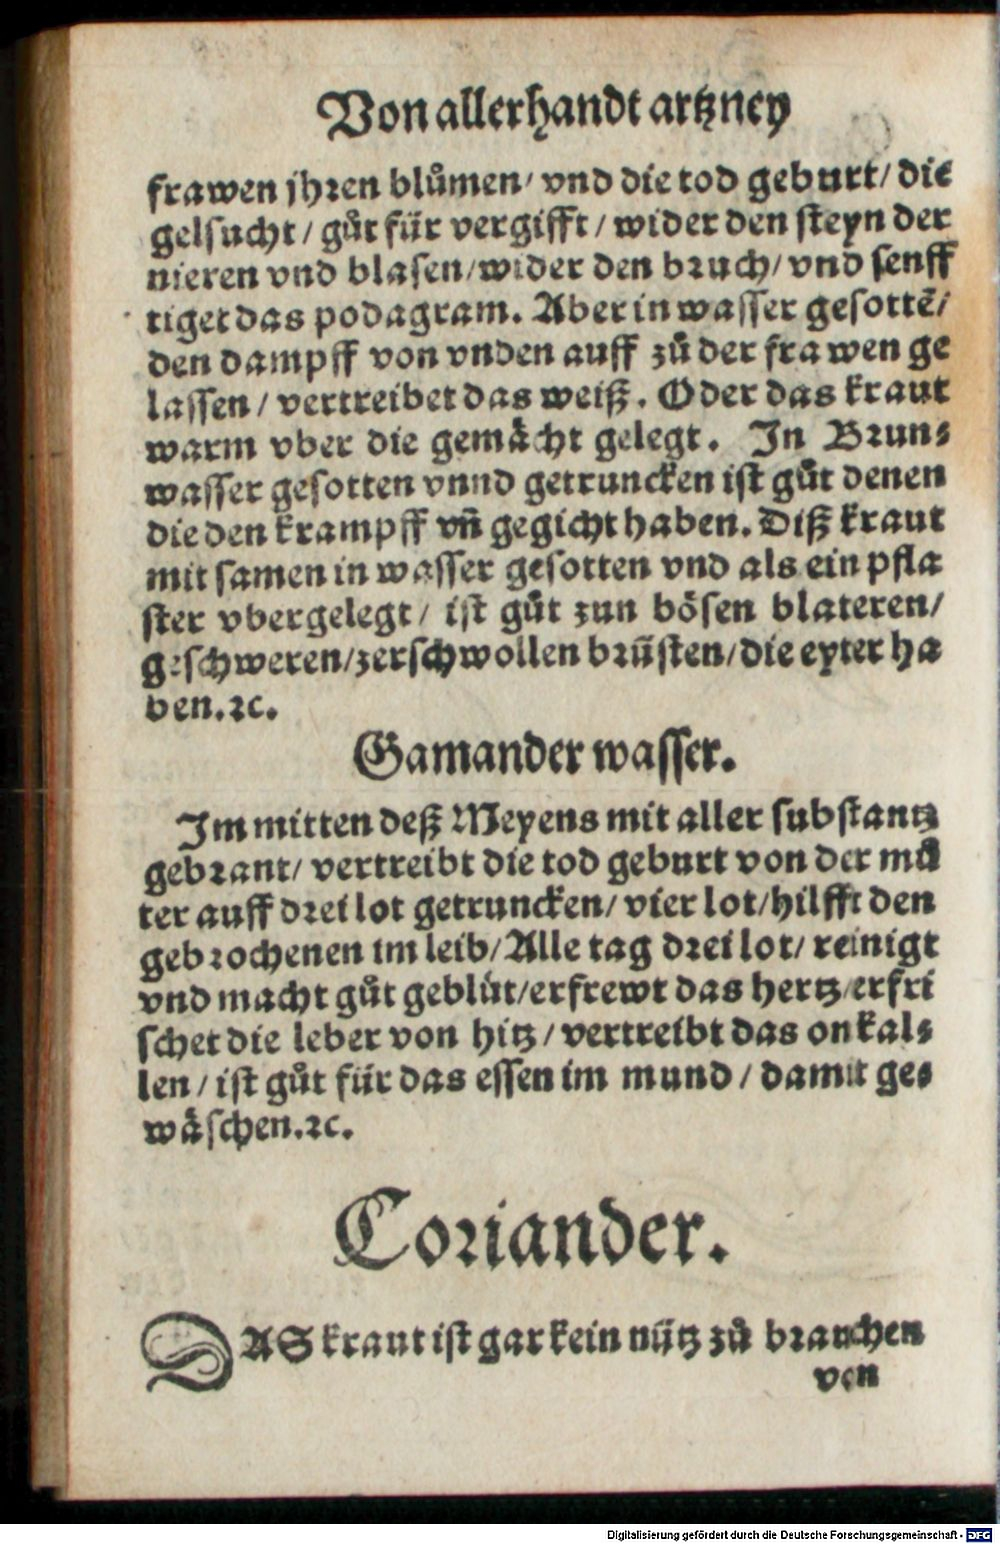 Von allerhandt artzney
frawen jhren blůmen/ vnd die tod geburt/ die
gelsucht/ gůt für vergifft/ wider den steyn der
nieren vnd blasen/ wider den bruch/ vnd senff
tiget das podagram. Aber in wasser gesottē/
den dampff von vnden auff zů der frawen ge
lassen/ vertreibet das weiß. Oder das kraut
warm vber die gemächt gelegt. In Brun⸗
wasser gesotten vnnd getruncken ist gůt denen
die den krampff vn̄ gegicht haben. Diß kraut
mit samen in wasser gesotten vnd als ein pfla
ster vbergelegt/ ist gůt zun bösen blateren/
geschweren/ zerschwollen brüsten/ die eyter ha
ben. ꝛc.
Gamander wasser.
Im mitten deß Meyens mit aller substantz
gebrant/ vertreibt die tod geburt von der mů
ter auff drei lot getruncken/ vier lot/ hilfft den
gebrochenen im leib/ Alle tag drei lot/ reinigt
vnd macht gůt geblüt/ erfrewt das hertz/ erfri
schet die leber von hitz/ vertreibt das onkal⸗
len/ ist gůt für das essen im mund/ damit ge⸗
wäschen. ꝛc.
Coriander.
DAS kraut ist gar kein nütz zů brauchen
von
Digitalisierung gefördert durch die Deutsche Forschungsgemeinschaft - DFG